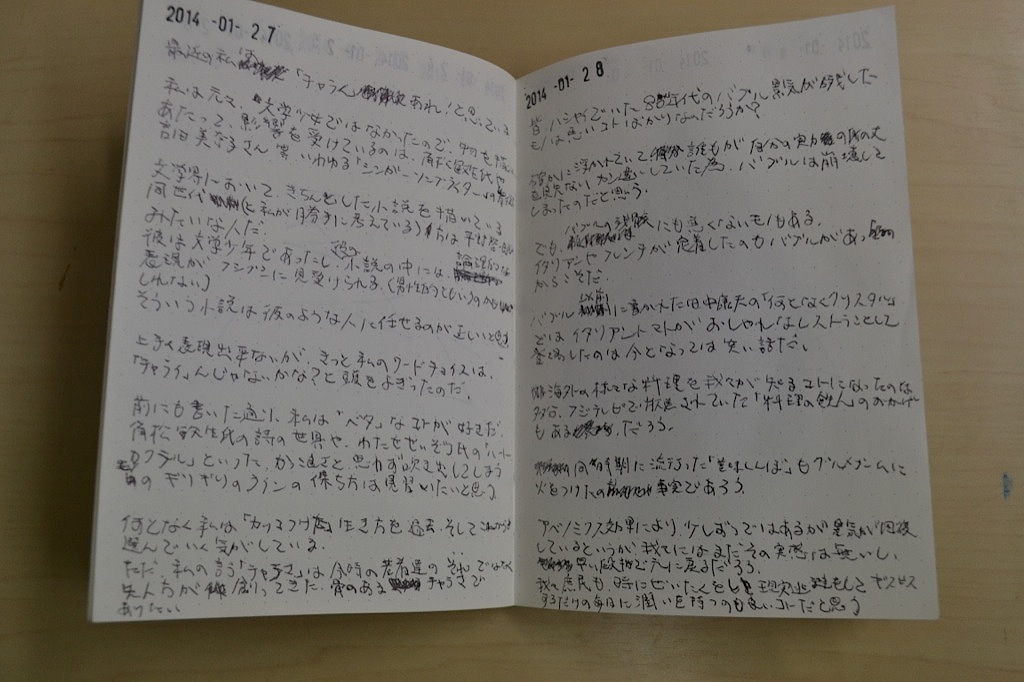 2014 -01- 27
最近の私は「チャラい」あれ!と思っている
私は元々、文学少女ではなかったので、物を描くに
あたって、影響を受けているのは、角松敏生氏や
吉田美奈子さん等、いわゆる「シンガーソングライター」
文学界において、きちんとした小説を描いている
同世代(と私が勝手に考えている)方は平野啓一郎
みたいな人だ。
彼は文学少年であったし、彼の小説の中には、論理的な
表現がフシブシに見受けられる。(男性的というのかも
しれない)
そういう小説は彼のような人に任せるのが正しいと思う
上手く表現出来ないが、きっと私のワードチョイスは、
「チャラい」んじゃないかな?と頭をよぎったのだ。
前にも書いた通り、私は「ベタ」なコトが好きだ。
角松敏生氏の詩の世界や、わたせせいぞう氏の「ハート
カクテル」といった、かっ良さと、思わず吹き出してしまう
のギリギリのラインの保ち方は見習いたいと思う
何となく私は「カッコつけた」生き方を過去、そしてこれからも
選んでいく気がしている。
ただ、私の言う「チャラさ」は、今時の若者達のそれではなく
先人方が創ってきた、骨のあるチャラさで
ありたい
2014 -01- 28
皆、ハシャイでいた80年代のバブル景気が残した
モノは悪いコトばかりなのだろうか?
確かに浮かれていて、誰もが自分の実力の身の丈
を見失ない、カン違いしていた為、バブルは崩壊して
しまったのだと思う。
でも、バブルへの にも悪くないモノもある。
イタリアンやフレンチが定着したのもバブルがあった
からこそだ。
バブル以前に書かれた田中康夫の「何となくクリスタル」
では、イタリアントマトがおしゃれなレストランとして
登場したのは今となっては笑い話だ。
海外の様々な料理を我々が知るコトになったのは
多分、フジテレビで放送されていた「料理の鉄人」のおかげ
もあるだろう。
同時期に流行った「美味しんぼ」もグルメブームに
火をつけたの事実であろう。
アベノミクス効果により、少しずつではあるが景気が回復
しているというが、我々にはまだその実感は無いし、
早い段階で元に戻るだろう。
我々庶民も、時にぜいたくをし、現実逃避をしてギスギス
するだけの毎日に潤いを持つのも良いコトだと思う